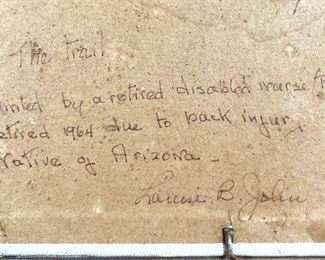 The Trail
ainted by a retired disabled nurse
etired 1964 due to back injury
Native of Arizona -
Louise B. John